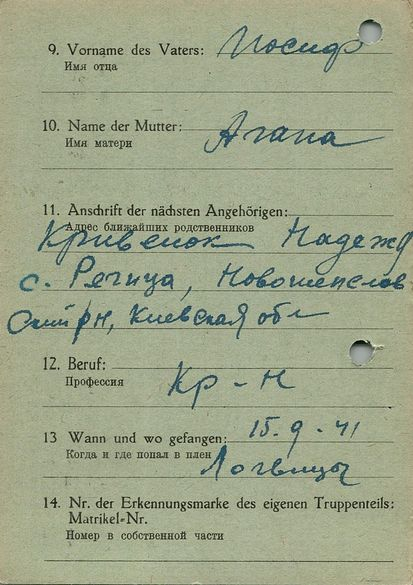 9. Vorname des Vaters: Иосиф
Имя отца
10. Name der Mutter: Агапа
Имя матери
11. Anschrift der nächsten Angehörigen:
Адрес ближайших родственников
Кривенок Надежд
с. Речица, Новошепелов
р-н, Киевская обл
12. Beruf:
Профессия
Кр-н
13 Wann und wo gefangen: 15.9-41
Когда и где попал в плен
Логвицы
14. Nr. der Erkennungsmarke des eigenen Truppenteils:
Matrikel-Nr.
Номер в собственной части